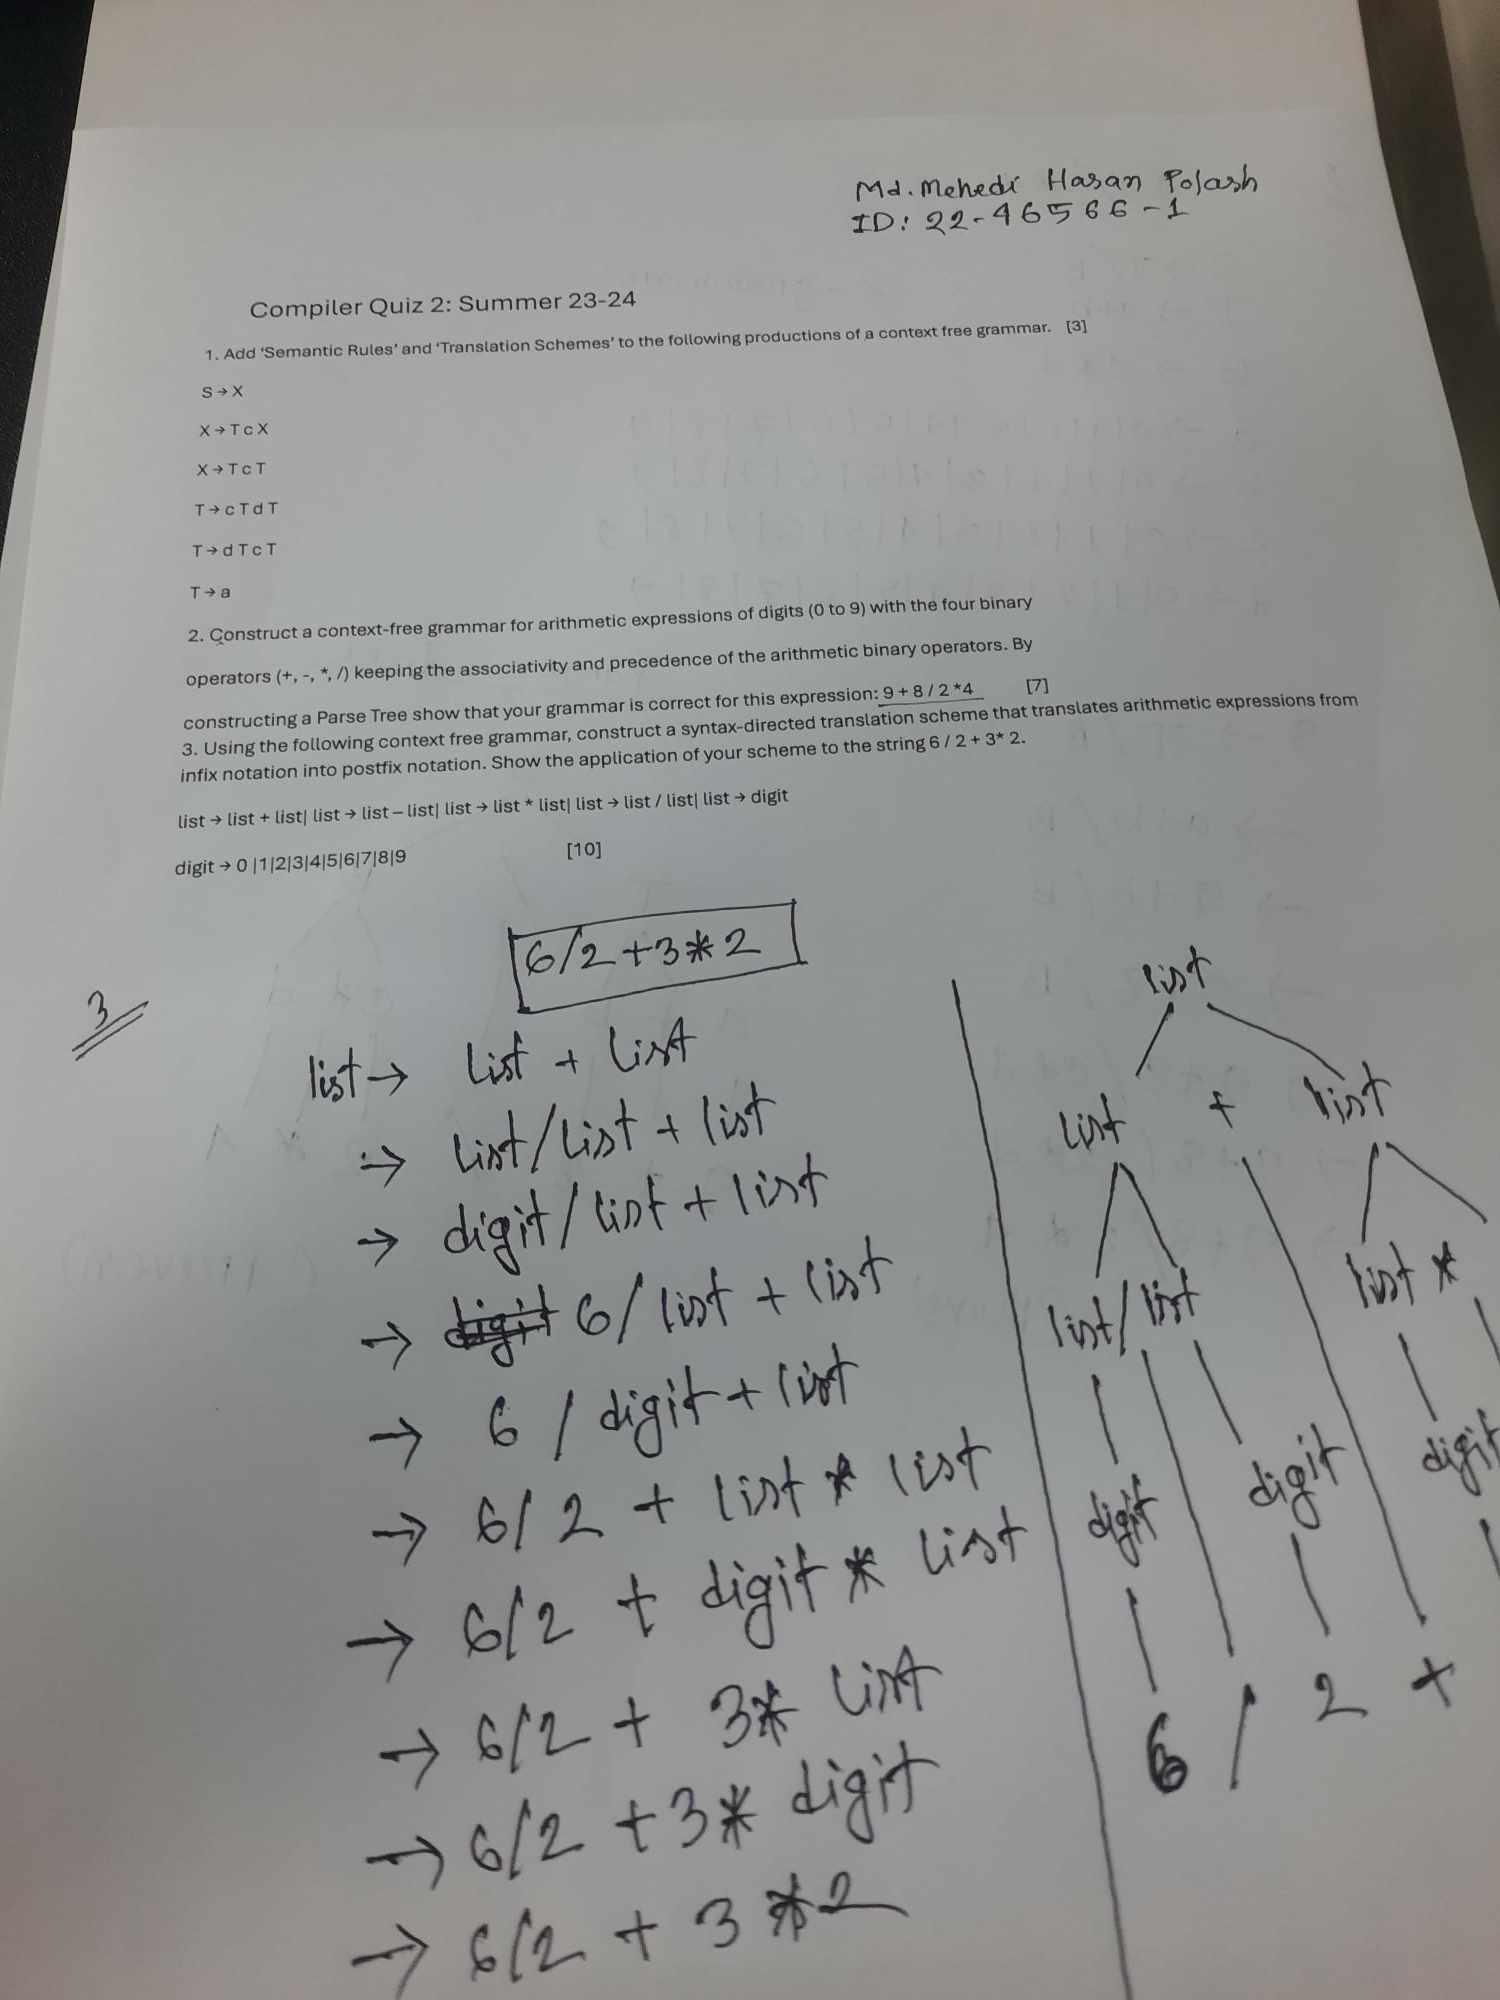 Md. Mehedi Hasan Polash
ID: 22-46566-1
Compiler Quiz 2: Summer 23-24
1. Add ‘Semantic Rules’ and ‘Translation Schemes’ to the following productions of a context free grammar. [3]
S → X
X → T c X
X → T c T
T → c T d T
T → d T c T
T → a
2. Construct a context-free grammar for arithmetic expressions of digits (0 to 9) with the four binary
operators (+, -, *, /) keeping the associativity and precedence of the arithmetic binary operators. By
constructing a Parse Tree show that your grammar is correct for this expression: 9 + 8 / 2 *4 [7]
3. Using the following context free grammar, construct a syntax-directed translation scheme that translates arithmetic expressions from
infix notation into postfix notation. Show the application of your scheme to the string 6 / 2 + 3* 2.
list → list + list| list → list – list| list → list * list| list → list / list| list → digit
digit → 0 |1|2|3|4|5|6|7|8|9 [10]
6/2+3*2
3
list → list + list
→ list/list + list
→ digit/list + list
→ 6/list + list
→ 6 / digit + list
→ 6/2 + list * list
→ 6/2 + digit * list
→ 6/2 + 3* list
→ 6/2 +3* digit
→ 6/2 + 3 *2
list
list + list
list/list list *
digit digit digit
6 / 2 +